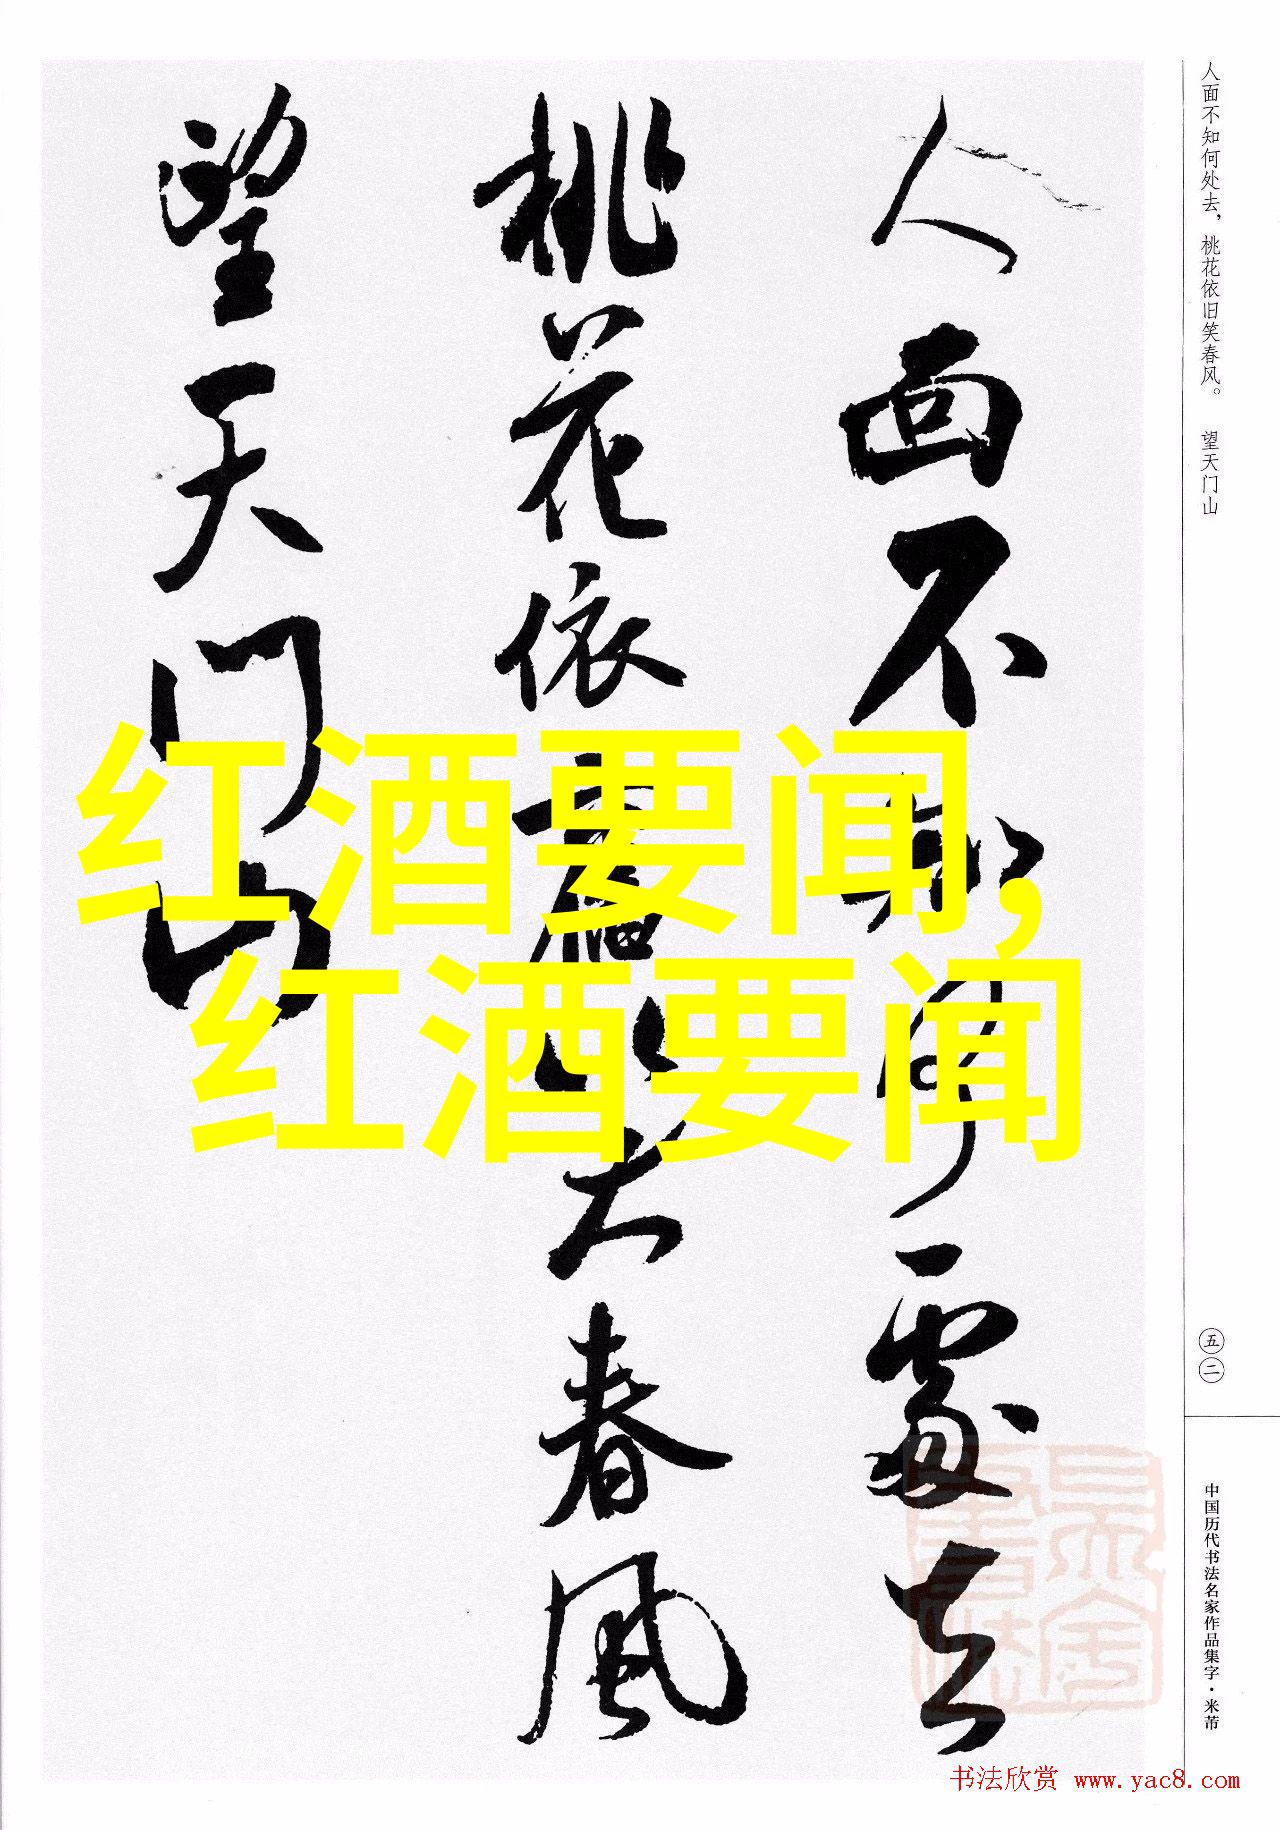 人面不知何處去
桃花依舊笑春风
望天门山
人面不知何处去，桃花依旧笑春风。 望天门山
红酒要闻，
红酒要闻
五二
中国历代书法名家作品集字·米芾
书法欣赏 www.yac8.com